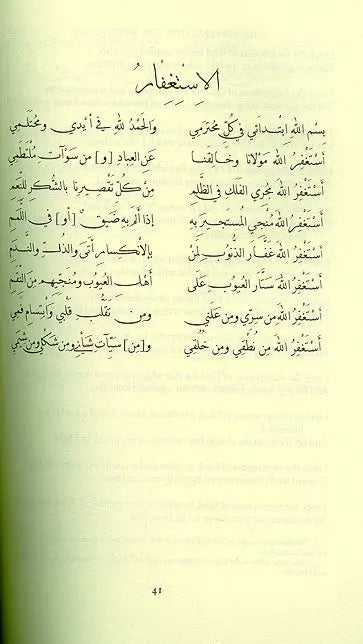 الاِسْتِغْفَارُ
بِسْمِ اللهِ اِبْتِدَائِي فِي كُلِّ مُحْتَرَمِي وَالْحَمْدُ لِلَّهِ فِي أَيْدِي وَمُخْتَتَمِي
أَسْتَغْفِرُ اللهَ مَوْلَانَا وَخَالِقَنَا عَنِ العِبَادِ [و] مِن سَوْآتِ مُلْتَطِمِي
أَسْتَغْفِرُ اللهَ مُجْرِي الفُلْكِ فِي الظُّلَمِ مِنْ كُلِّ تَقْصِيرِنَا بِالشُّكْرِ لِلنِّعَمِ
أَسْتَغْفِرُ اللهَ مُنْجِي المُسْتَجِيرَ بِهِ إِذَا أَلَمَّ بِهِ ضَيْقٌ [أو] فِي اللَّمَمِ
أَسْتَغْفِرُ اللهَ غَفَّارَ الذُّنُوبِ لِمَنْ بِالاِنْكِسَارِ أَتَى وَالذُّلِّ وَالنَّدَمِ
أَسْتَغْفِرُ اللهَ سَتَّارَ العُيُوبِ عَلَى أَهْلِ العُيُوبِ وَمُنْجِيهِم مِنَ النِّقَمِ
أَسْتَغْفِرُ اللهَ مِن سِرِّي وَمِن عَلَنِي وَمِن تَقَلُّبِ قَلْبِي وَابْتِسَامِ فَمِي
أَسْتَغْفِرُ اللهَ مِن نُطْقِي وَمِن خُلُقِي و[مِن] سَيِّآتِ شَأْنِي وَمِن شَكْلِي وَمِن شِيَمِي
41